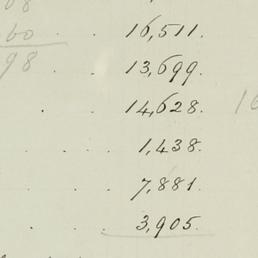 08
60 . . 16,511.
98 . . 13,699.
. 14,628. 10
. . . 1,438.
. . 7,881.
. . . 3,905.